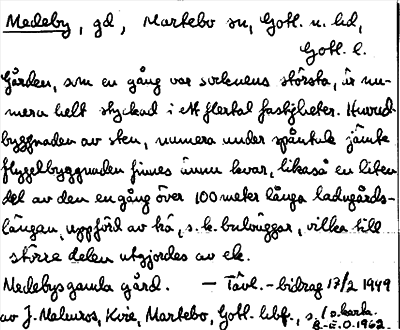 Medeby, gd, Martebo sn, Gotl. n. hd,
Gotl. l.
Gården, som en gång var socknens största, är nu-
mera helt styckad i ett flertal fastigheter. Huvud-
byggnaden av sten, numera under spåntak jämte
flygelbyggnaden finnes ännu kvar, likaså en liten
del av den en gång över 100 meter långa ladugårds-
längan, uppförd av trä, s.k. bulväggar, vilka till
större delen utgjordes av ek.
Medebys gamla gård. — Tävl.-bidrag 17/2 1949
av J. Melmros, Kvie, Martebo, Gotl. hbf., s. 1 o. karta.
B.-E. O. 1962.